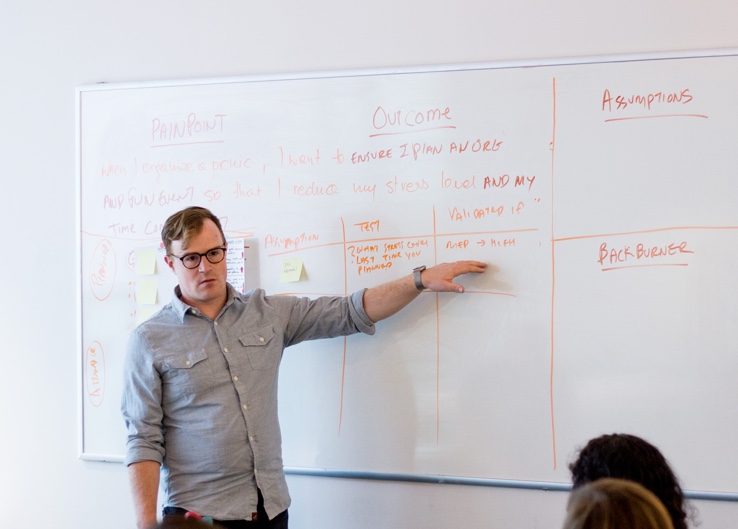 PAINPOINT
OUTCOME
ASSUMPTIONS
when I organize a picnic, I want to ENSURE I PLAN AN ORG
AND FUN EVENT so that I reduce my stress level AND MY
TIME
ASSUMPTION
TEST
VALIDATED if
BACKBURNER
WHAT STRESS LEVEL
LAST TIME YOU
PLANNED
MED → HIGH